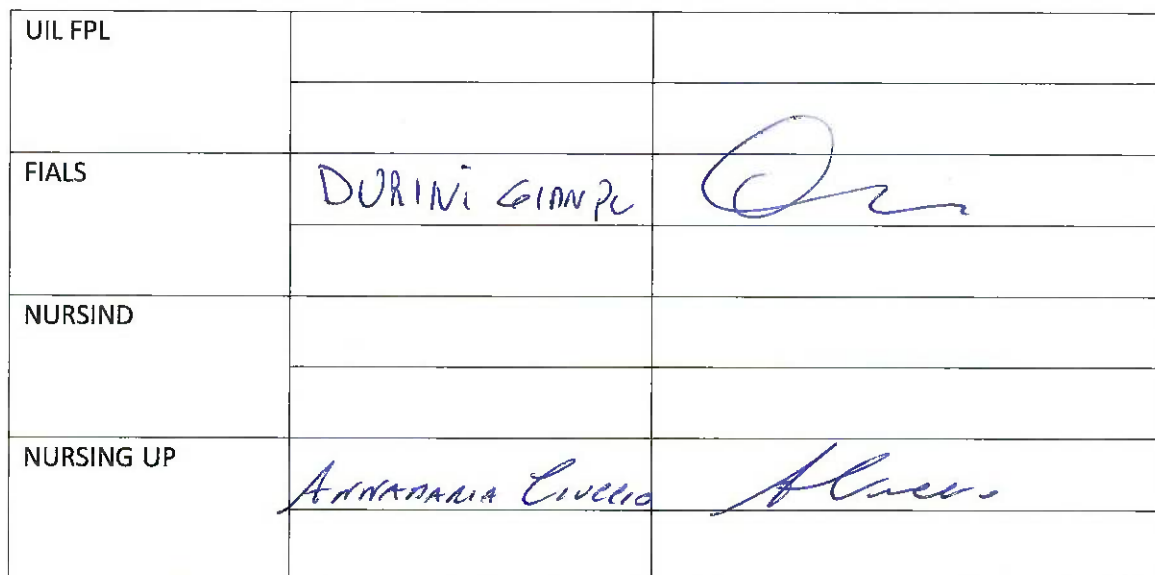 UIL FPL
FIALS DURINI GIANPL
NURSIND
NURSING UP ANNAMARIA